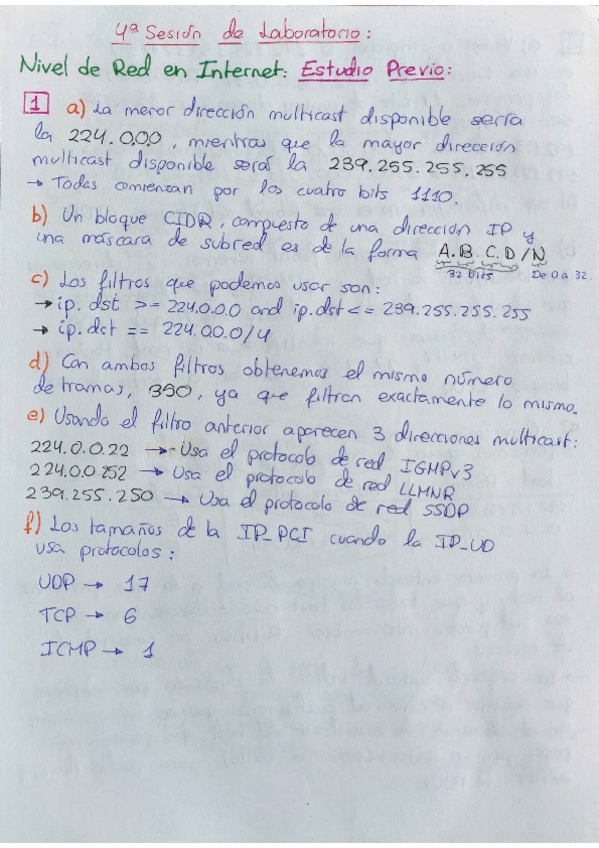 4ª Sesión de Laboratorio:
Nivel de Red en Internet: Estudio Previo:
1 a) La menor dirección multicast disponible sería
la 224.0.0.0, mientras que la mayor dirección
multicast disponible será la 239.255.255.255
→ Todas comienzan por los cuatro bits 1110.
b) Un bloque CIDR, compuesto de una dirección IP y
una máscara de subred es de la forma A.B.C.D/N
32 bits De 0 a 32.
c) Los filtros que podemos usar son:
→ ip.dst >= 224.0.0.0 and ip.dst <= 239.255.255.255
→ ip.dst == 224.0.0.0/4
d) Con ambos filtros obtenemos el mismo número
de tramas, 350, ya que filtran exactamente lo mismo.
e) Usando el filtro anterior aparecen 3 direcciones multicast:
224.0.0.22 → Usa el protocolo de red IGMPv3
224.0.0.252 → Usa el protocolo de red LLMNR
239.255.250 → Usa el protocolo de red SSDP
f) Los tamaños de la IP_PCI cuando la IP_UD
usa protocolos:
UDP → 17
TCP → 6
ICMP → 1